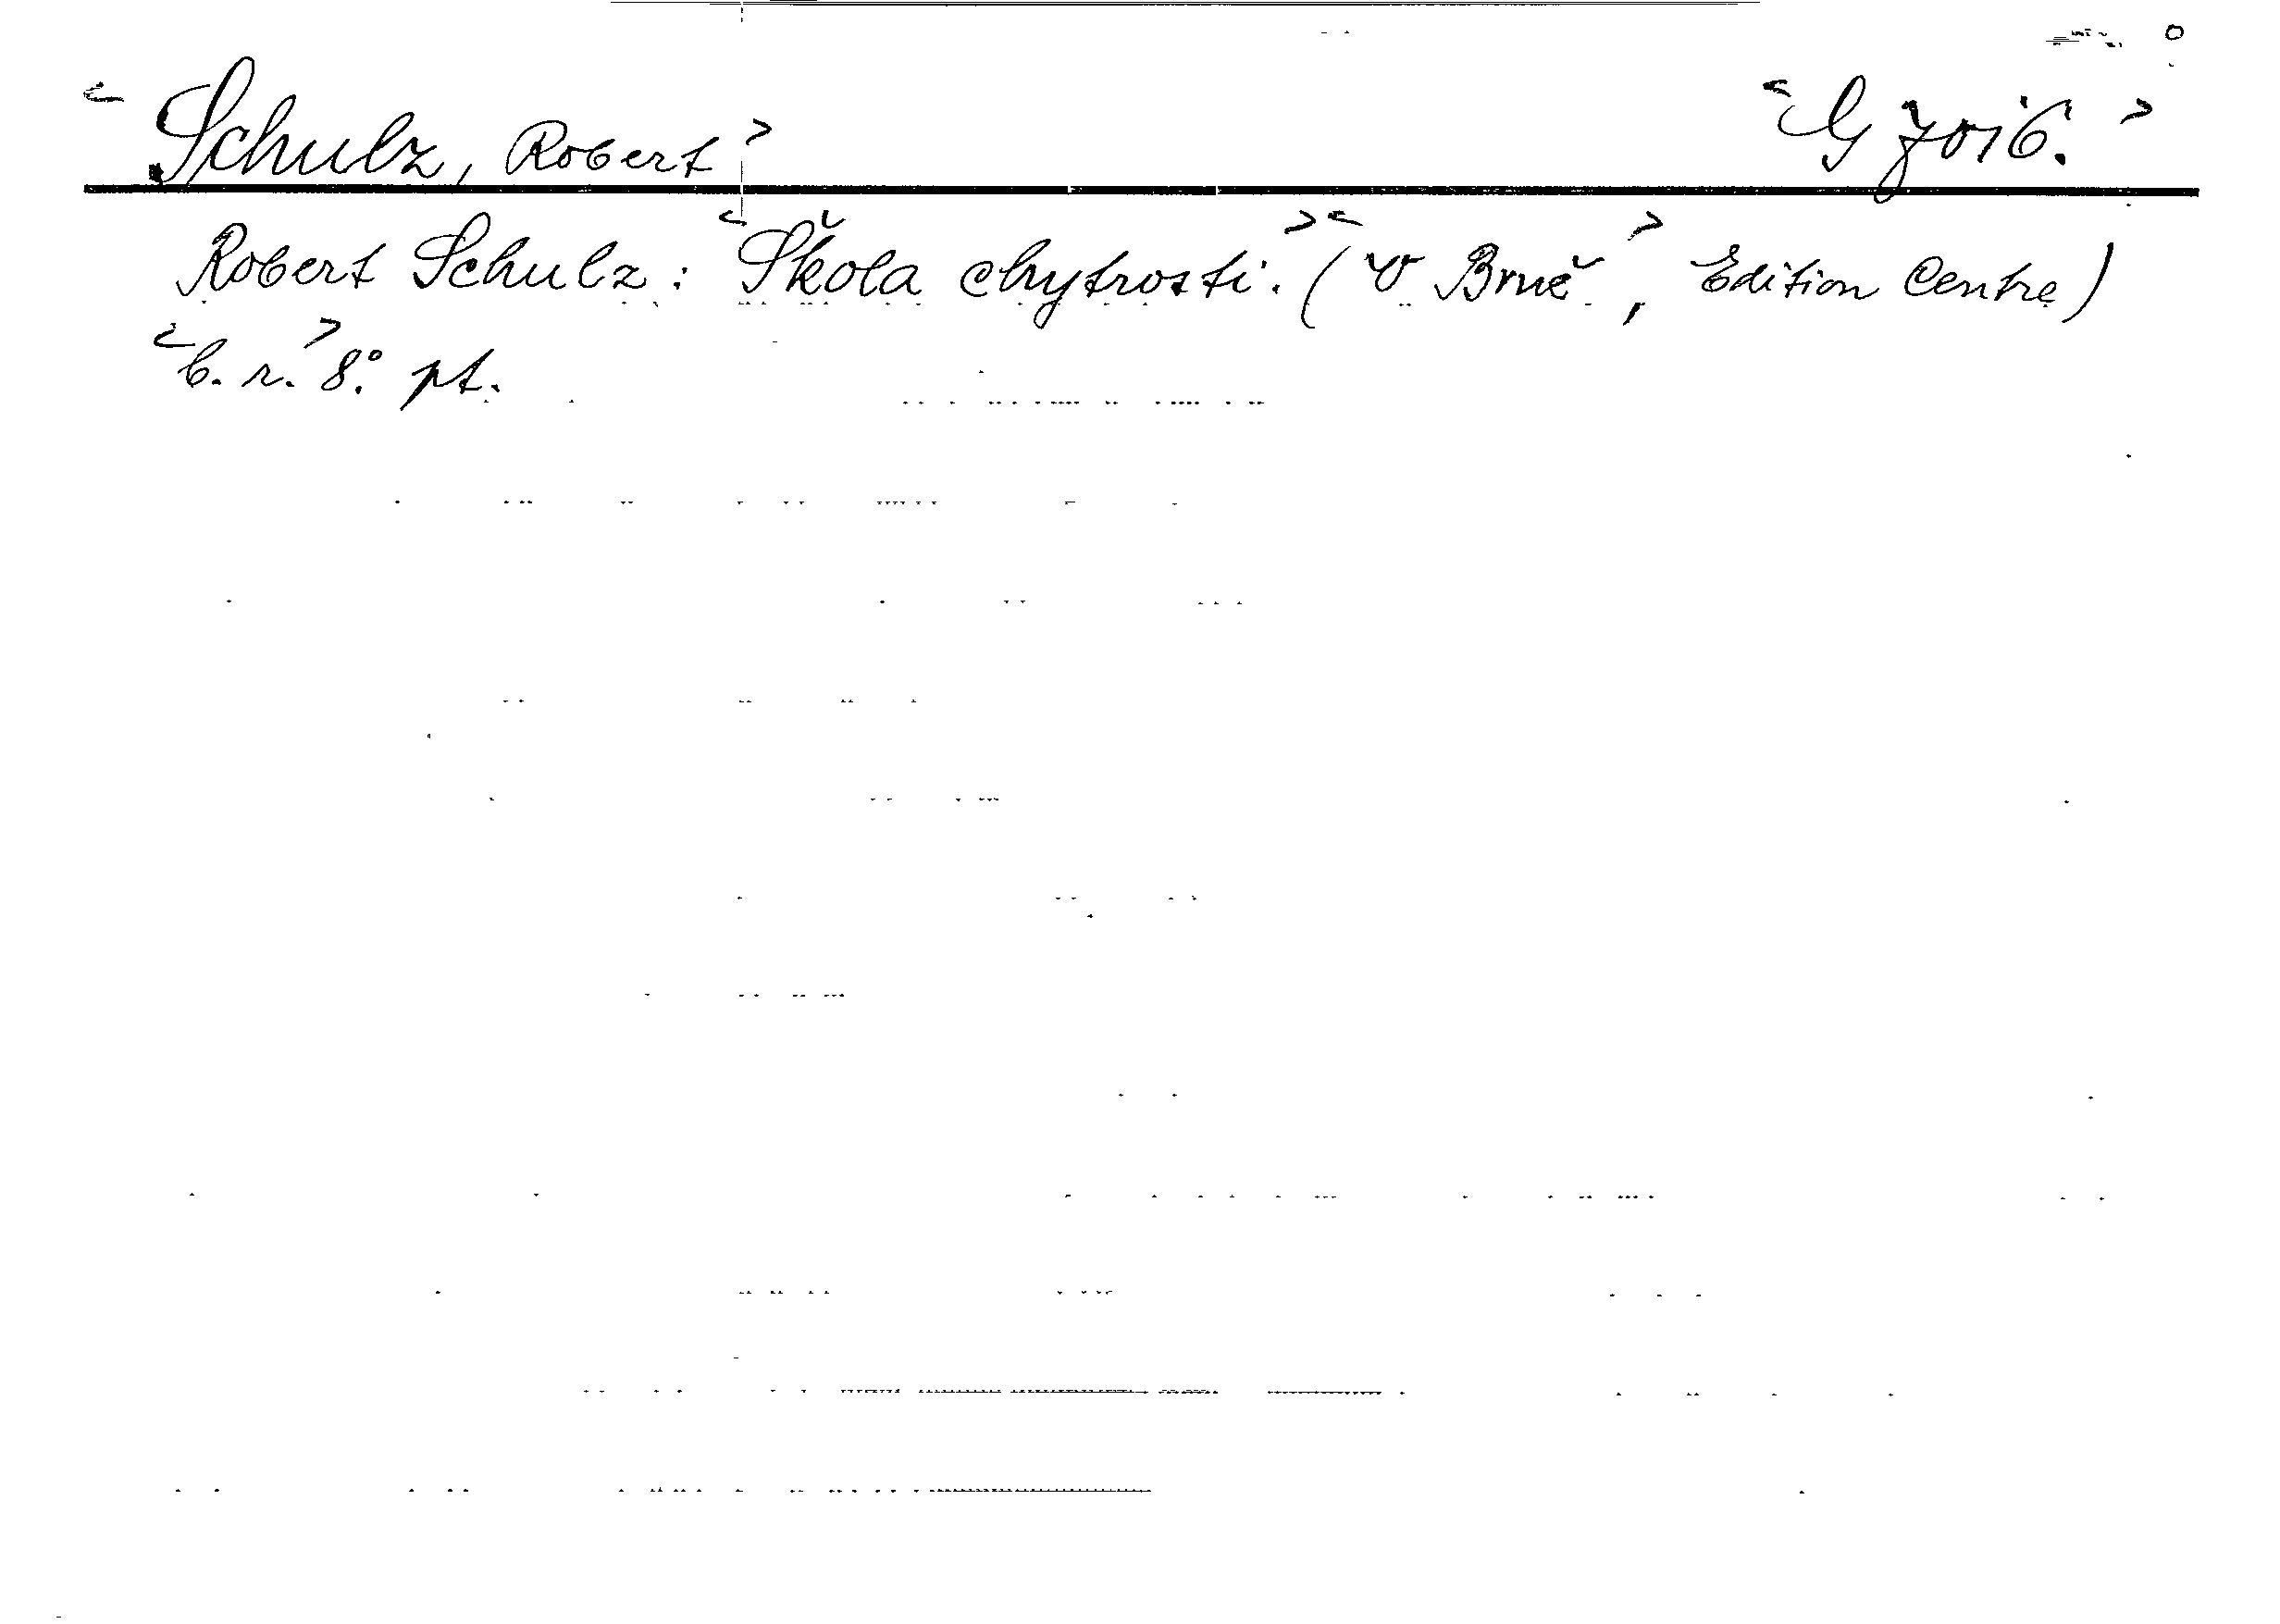 Schulz, Robert G 7016.
Robert Schulz: Škola chytrosti. (V Brně, Edition Centre)
b. r. 8°. pt.